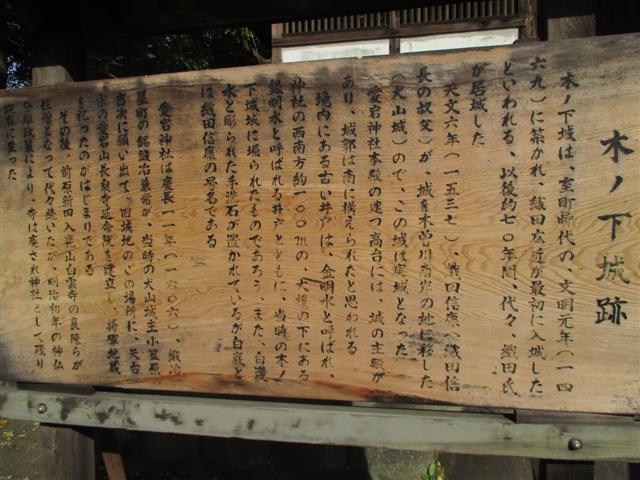 木ノ下城跡
木ノ下城は、室町時代の、文明元年(一四
六九)に築かれ、織田広近が最初に入城した
といわれる、以後約七〇年間、代々、織田氏
が居城した
天文六年(一五三七)、織田信康(織田信
長の叔父)が、城を木曽川南岸の地に移した
(犬山城)ので、この城は廃城となった
愛宕神社本殿の建つ高台には、城の主殿が
あり、城郭は南に構えられたと思われる
境内にある古い井戸は、金明水と呼ばれ、
神社の西南方約一〇〇mの、大榎の下にある
銀明水と呼ばれる井戸とともに、当時の木ノ
下城域に堀られたものであろう、また、白巌
水と彫られた手洗石が置かれているが白巌と
は織田信康の号名である
愛宕神社は慶長一一年(一六〇六)、鍛冶
屋町の銘鍛冶兼常が、当時の犬山城主小笠原
吉次に願い出て、旧城地のこの場所に、天台
宗の愛宕山長泉寺延命院を建立し、将軍地蔵
を祀ったのがはじまりである
その後、前原新田入鹿山白雲寺の良陵らが
住僧となって代々続いたが、明治初年の神仏
分離政策により、寺は廃され神社として残り
に至った